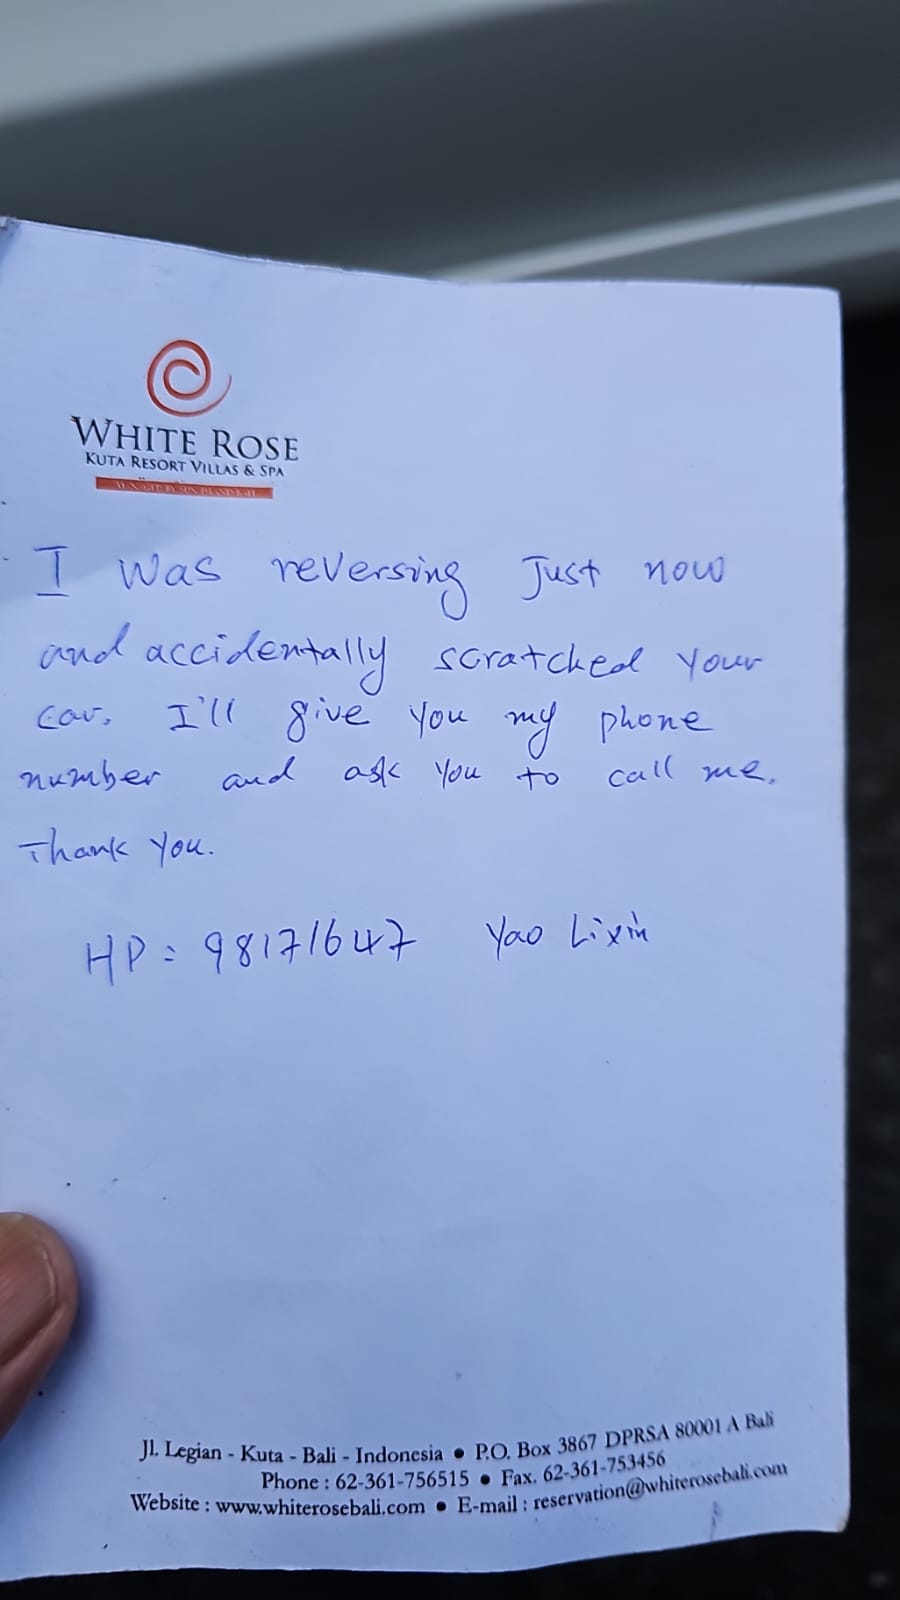 WHITE ROSE
KUTA RESORT VILLAS & SPA
I was reversing Just now
and accidentally scratched your
car. I'll give you my phone
number and ask you to call me.
Thank you.
HP: 98171647 Yao Lixin
Jl. Legian - Kuta - Bali - Indonesia • P.O. Box 3867 DPRSA 80001 A Bali
Phone : 62-361-756515 • Fax. 62-361-753456
Website : www.whiterosebali.com • E-mail : reservation@whiterosebali.com